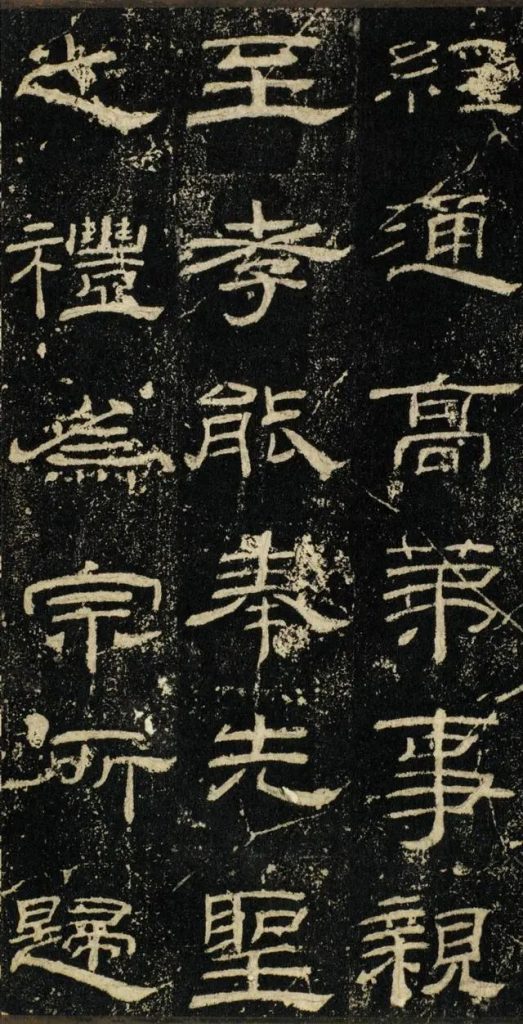 經通高第事親
至孝能奉先聖
之禮為宗所歸